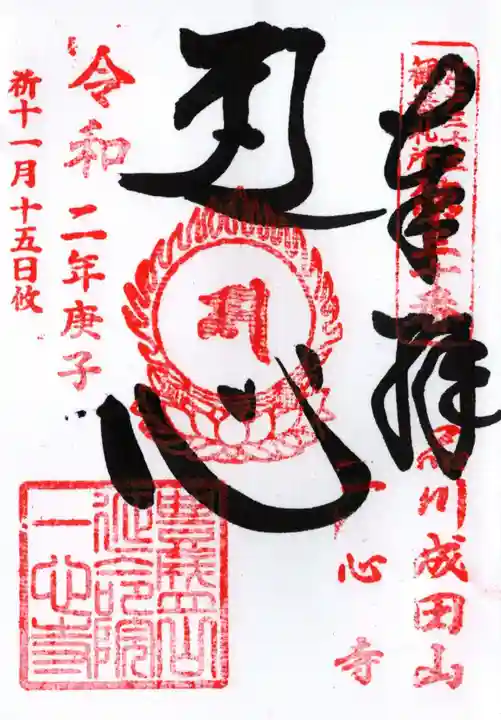 奉拝
品川成田山
一心寺
一心
令和二年庚子
祈十一月十五日攸
豊盛山
延命院
一心寺